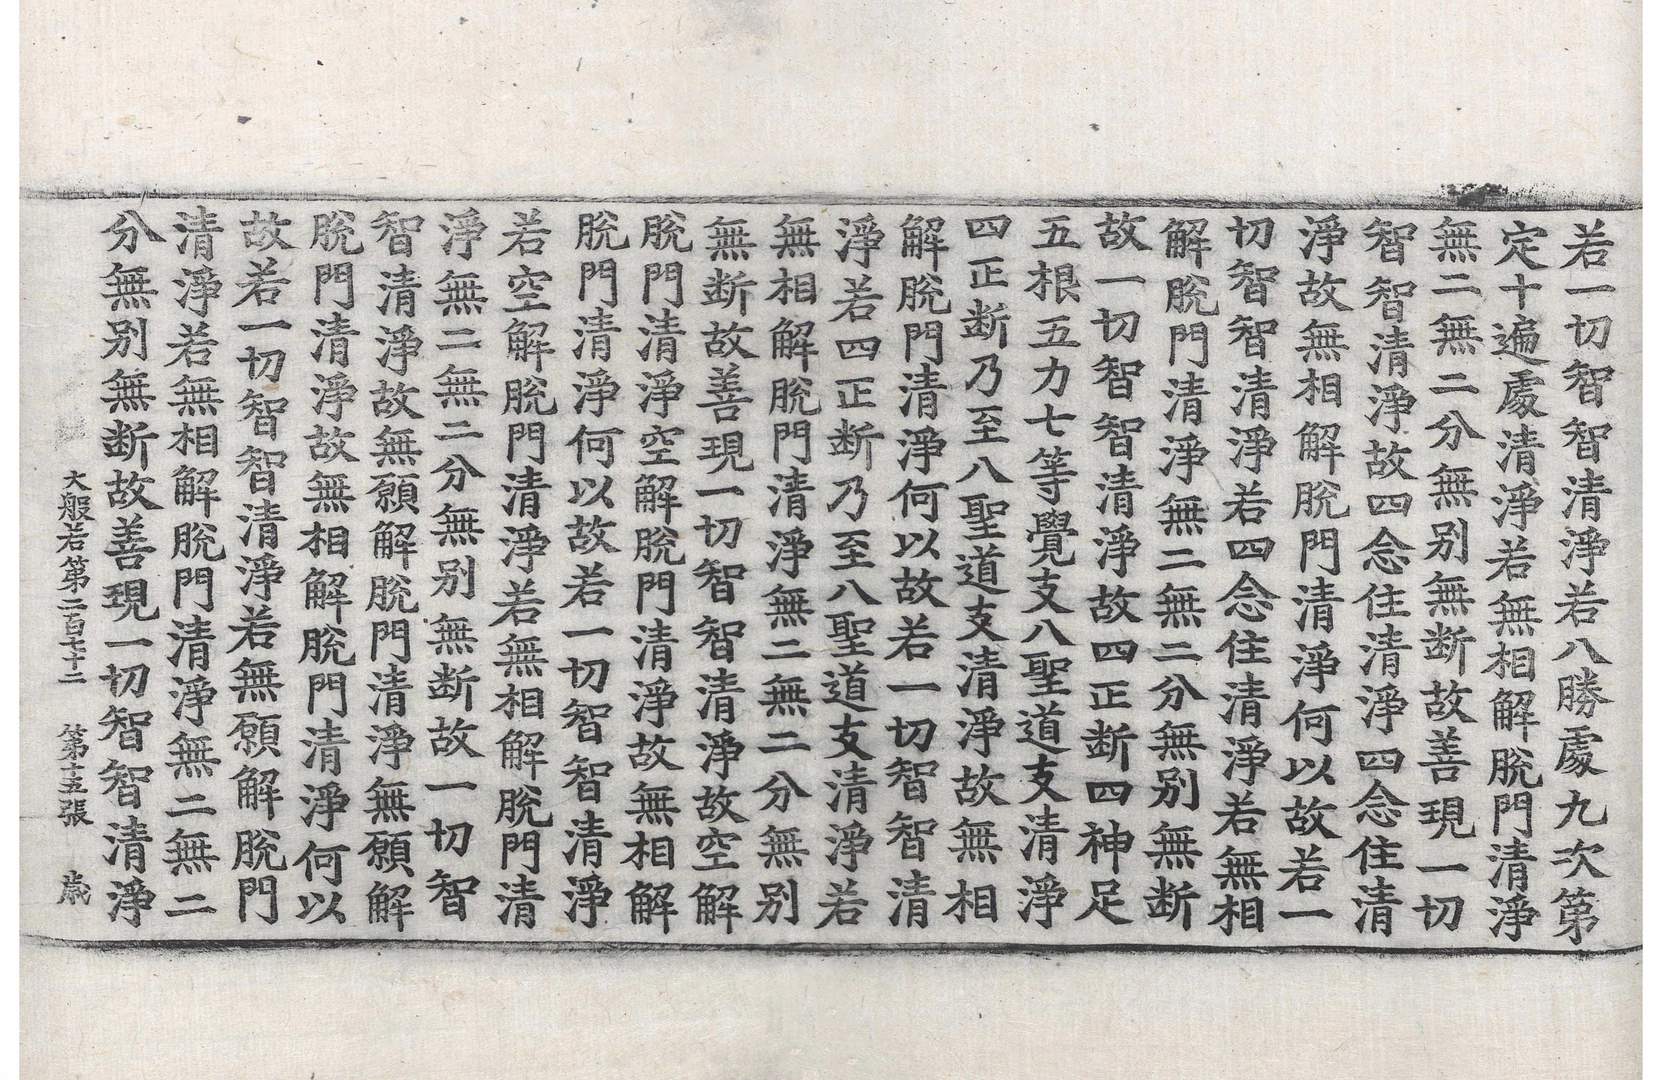 若一切智智清淨若八勝處九次第
定十遍處清淨若無相解脫門清淨
無二無二分無别無断故善現一切
智智清淨故四念住清淨四念住清
淨故無相解脫門清淨何以故若一
切智智清淨若四念住清淨若無相
解脫門清淨無二無二分無别無断
故一切智智清淨故四正断四神足
五根五力七等覺支八聖道支清淨
四正断乃至八聖道支清淨故無相
解脫門清淨何以故若一切智智清
淨若四正断乃至八聖道支清淨若
無相解脫門清淨無二無二分無别
無断故善現一切智智清淨故空解
脫門清淨空解脫門清淨故無相解
脫門清淨何以故若一切智智清淨
若空解脫門清淨若無相解脫門清
淨無二無二分無别無断故一切智
智清淨故無願解脫門清淨無願解
脫門清淨故無相解脫門清淨何以
故若一切智智清淨若無願解脫門
清淨若無相解脫門清淨無二無二
分無别無断故善現一切智智清淨
大般若第二百七十二 第十五張 歲